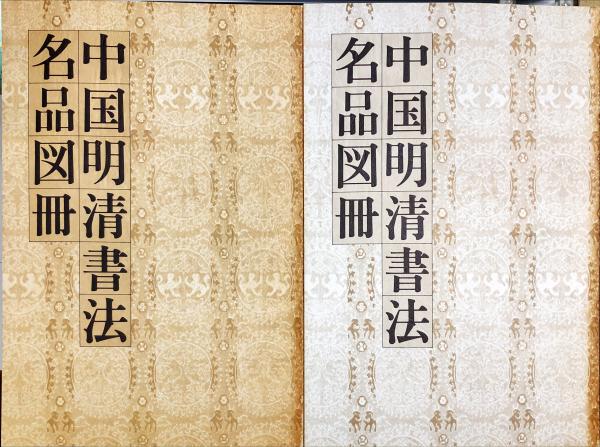 中国明清書法
名品図冊
中国明清書法
名品図冊